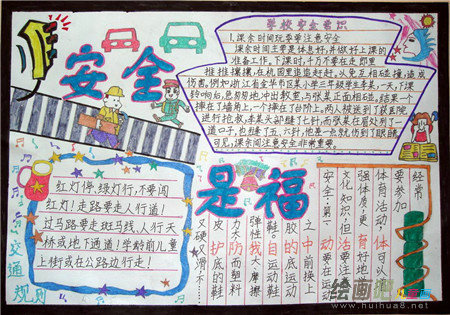 安全
是福
学校安全常识
1.课余时间玩耍要注意安全
课余时间主要是休息好,并做好上课的
准备工作。下课时,千万不要在走廊里
推推攘攘,在园里追追赶赶,以免互相碰撞,造成
伤害。例如:浙江省金华市区某小学三年级学生某,一天,下课
铃响后,急匆匆地冲出教室,与张某正面相碰,结果一个
摔在了墙角上,一个摔在了台阶上。两人被送到了医院
进行抢救,某头部缝了七针,而张某在眉处划了一
道口子,也缝了五、六针,他差一点就伤到了眼睛。
可见,课余间注意安全非常重要。
红灯停,绿灯行,不要闯
红灯!走路要走人行道!
过马路要走斑马线、人行天
桥或地下通道!学龄前儿童
上街或在公路边行走!
交通规则
经常
要参加
体育活动,体可以
强体质,更育好地
文化知识,但要注
安全:第一动要在运动
之中前换上
胶的底运动
鞋。自运动
弹性我大摩擦
力大防而塑料
皮护底的鞋
又硬又滑不
绘画
www.huihua8.net